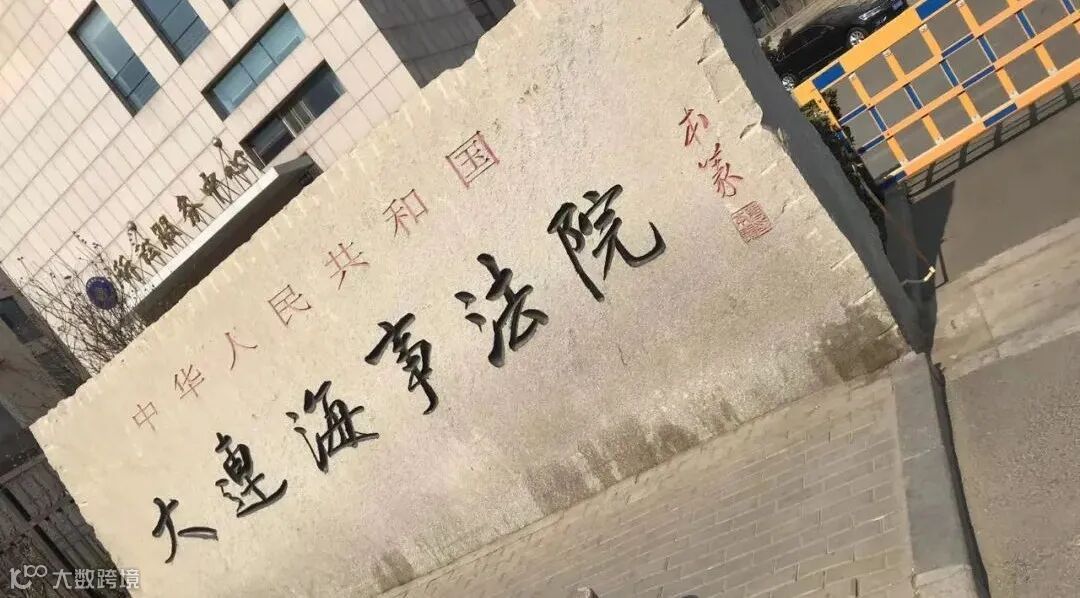 中华人民共和国
大連海事法院
诉讼服务中心
大数跨境